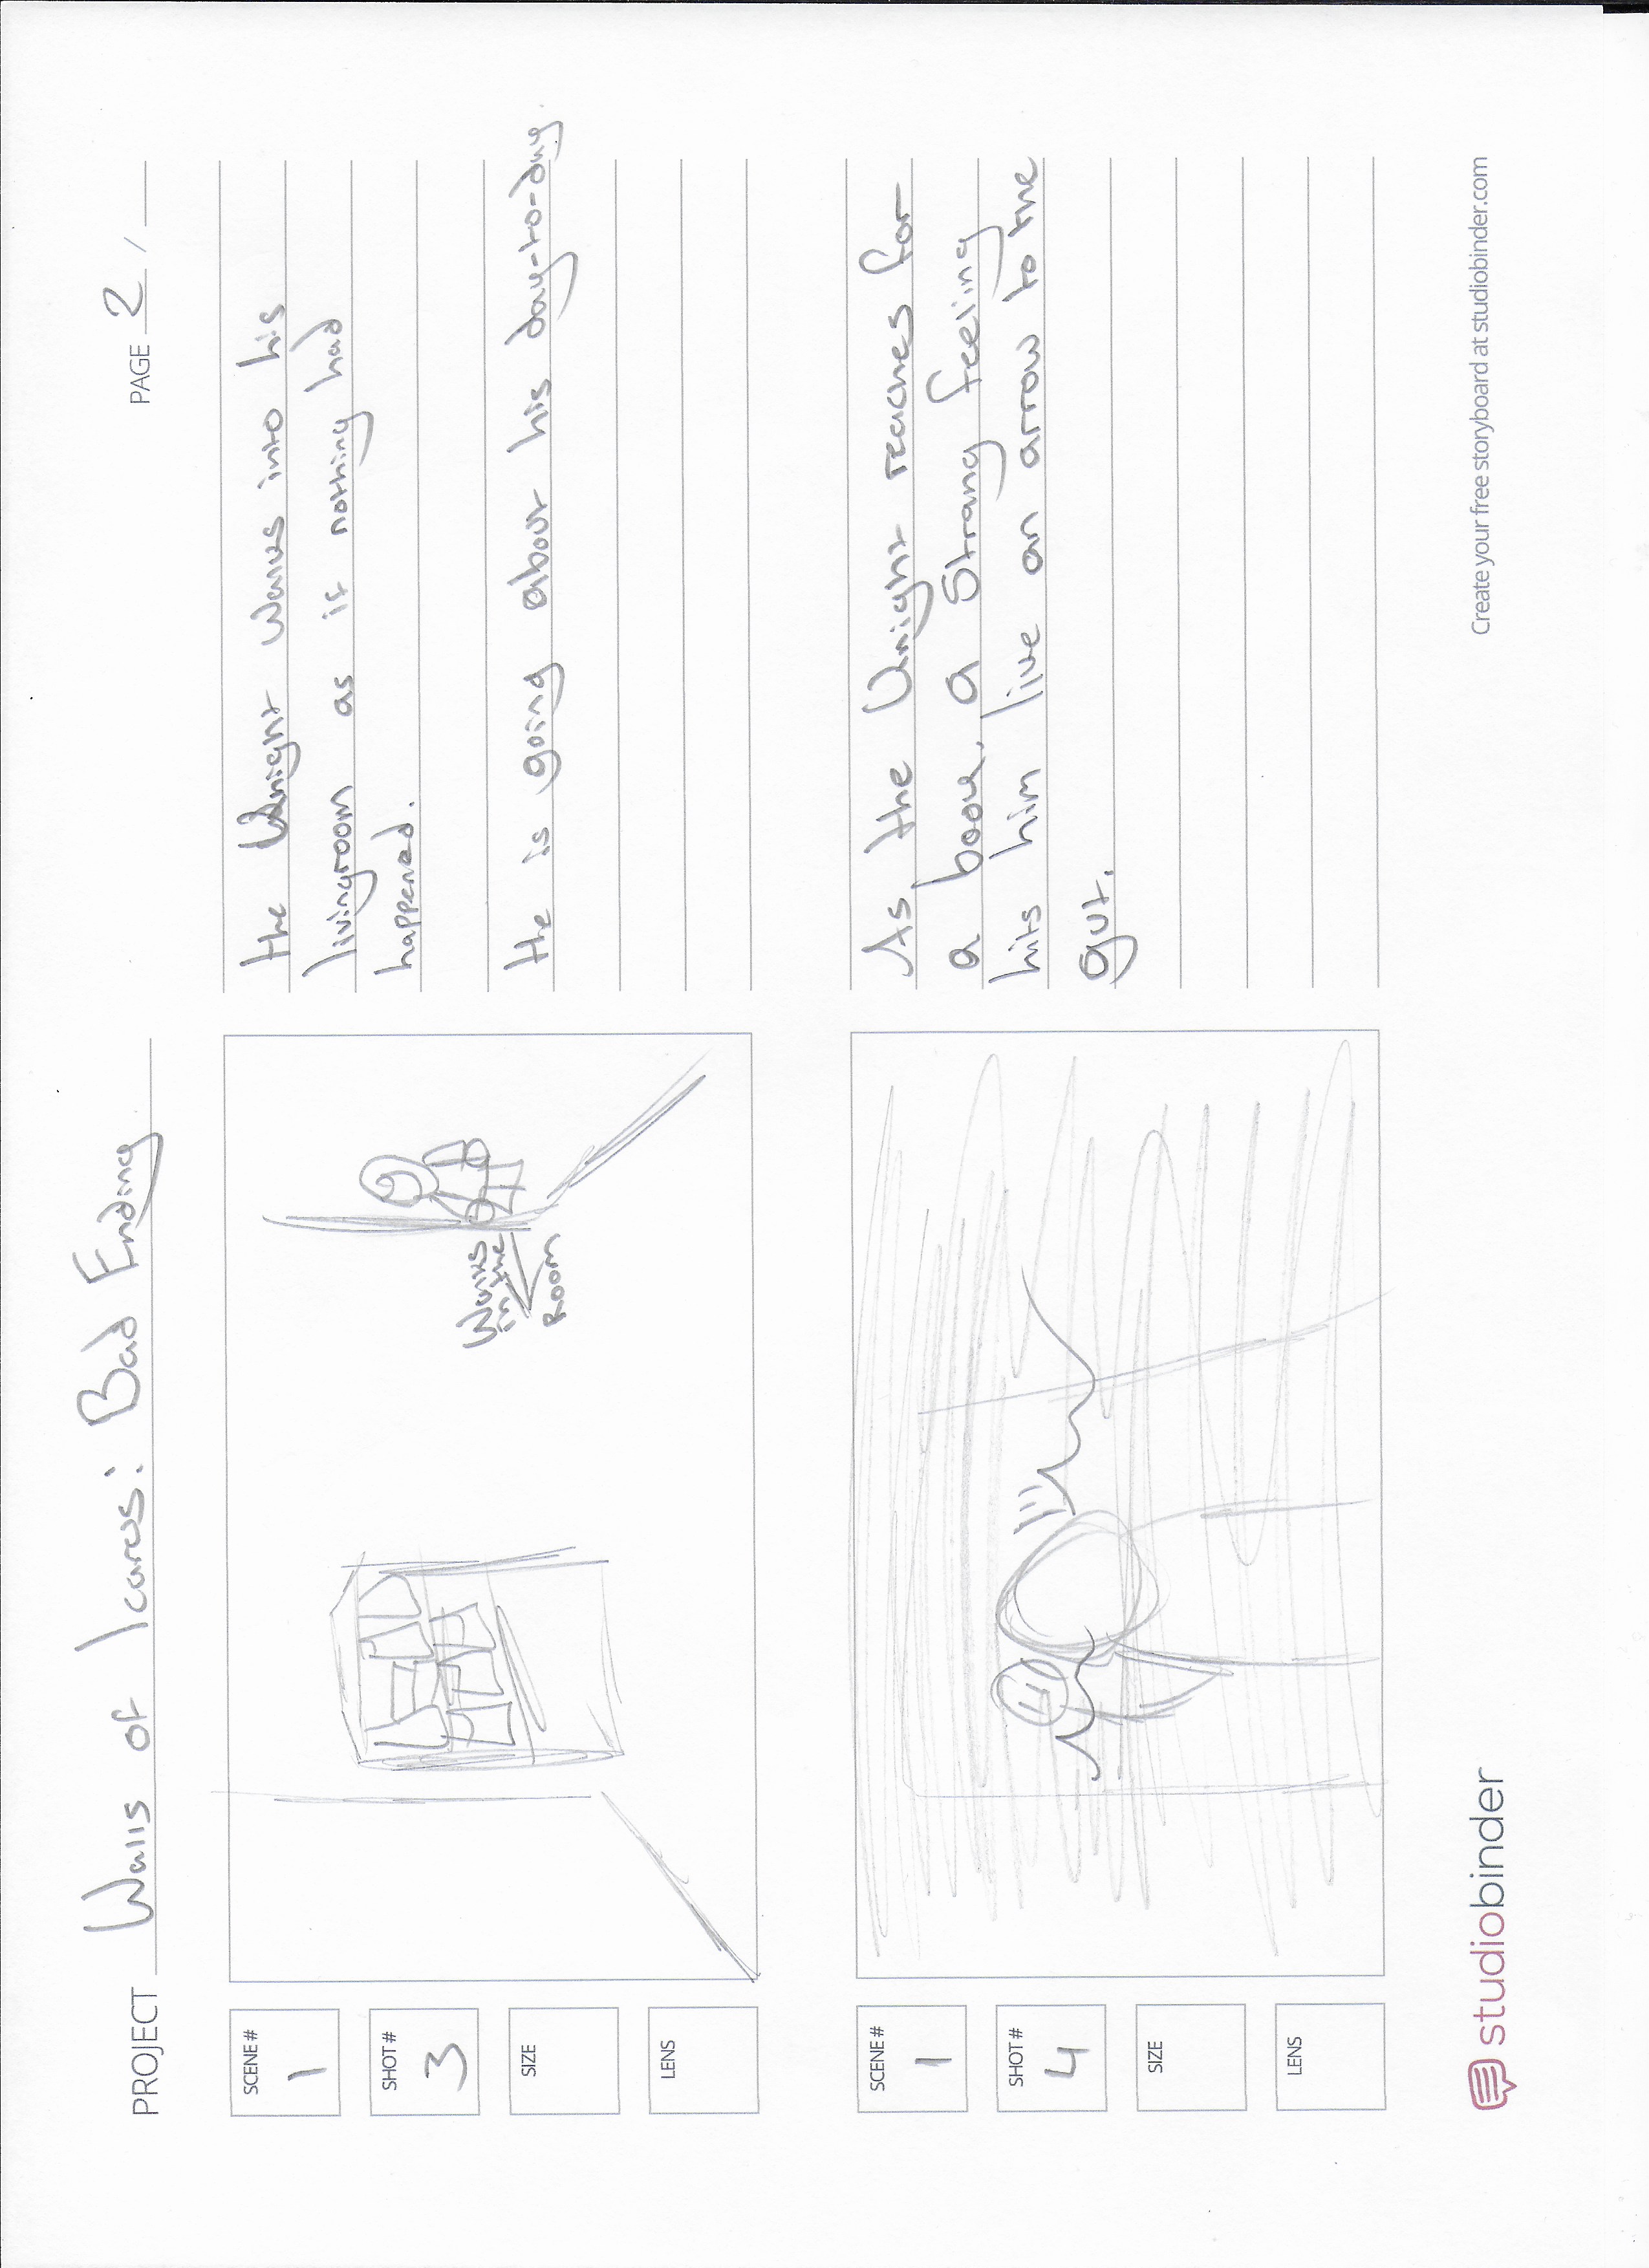 PROJECT Walls of Icarus: Bad Ending
PAGE 2 /
SCENE #
1
SHOT #
3
SIZE
LENS
Walks
in the
Room
the Knight Walks into his
livingroom as if nothing had
happened.
He is going about his day-to-day.
SCENE #
1
SHOT #
4
SIZE
LENS
As the Knight reaches for
a book, a Strang feeling
hits him live an arrow to the
gut.
studiobinder
Create your free storyboard at studiobinder.com